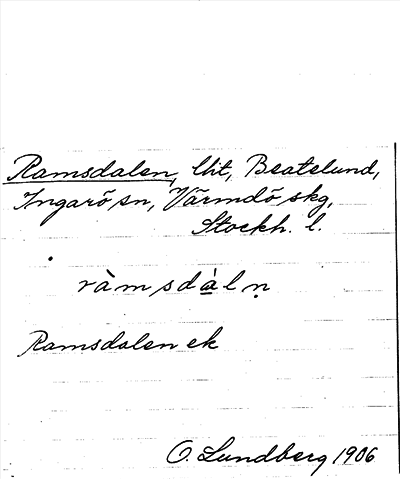 Ramsdalen, lht, Beatelund,
Ingarö sn, Värmdö skg,
Stockh. l.
ràmsdàlṇ
Ramsdalen ek
O. Lundberg 1906